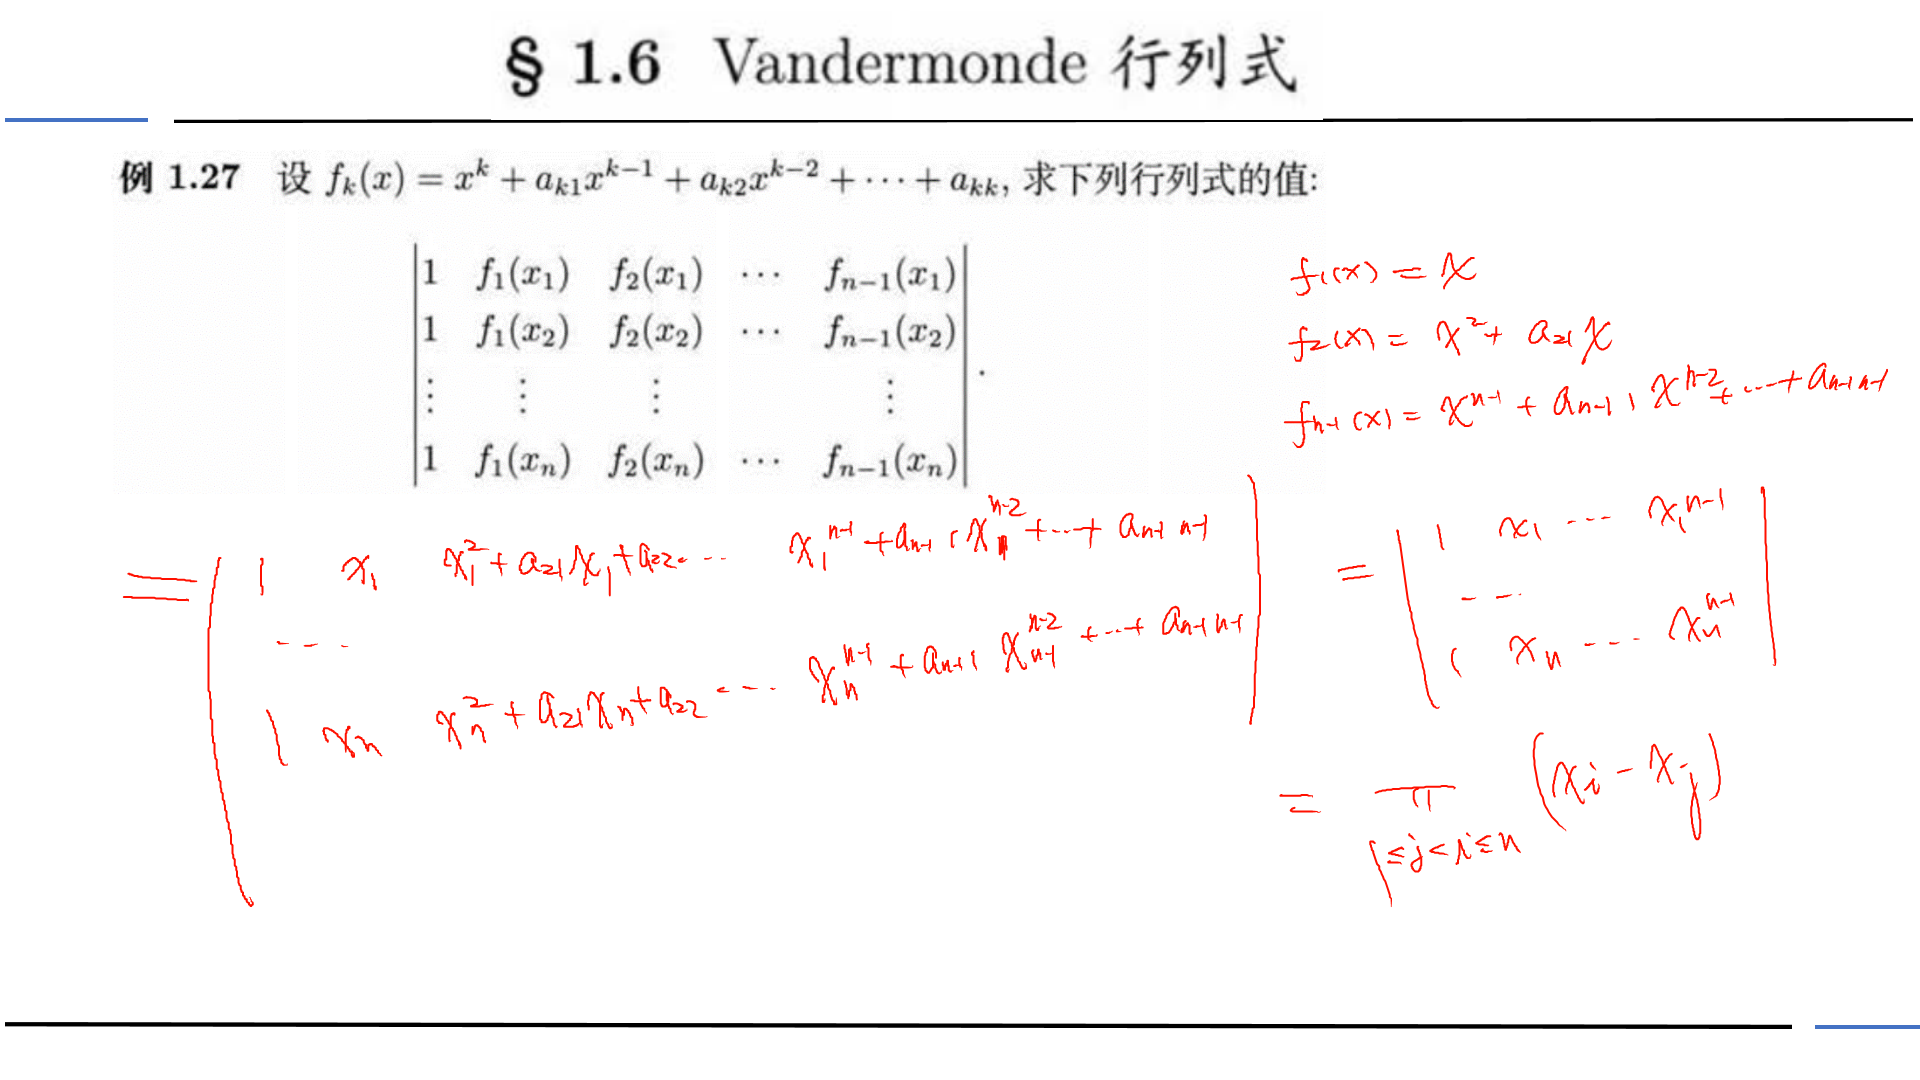 § 1.6 Vandermonde 行列式
例 1.27 设 f_k(x) = x^k + a_{k1}x^{k−1} + a_{k2}x^{k−2} + ⋯ + a_{kk}, 求下列行列式的值:
|1 f_1(x_1) f_2(x_1) ⋯ f_{n−1}(x_1)|
|1 f_1(x_2) f_2(x_2) ⋯ f_{n−1}(x_2)|
|⋮ ⋮ ⋮ ⋮|
|1 f_1(x_n) f_2(x_n) ⋯ f_{n−1}(x_n)| .
f_1(x) = x
f_2(x) = x^2 + a_{21}x
f_{n-1}(x) = x^{n-1} + a_{n-1 1} x^{n-2} + ⋯ + a_{n-1 n-1}
= | 1 x_1 x_1^2 + a_{21}x_1 + a_{22} ⋯ x_1^{n-1} + a_{n-1 1} x_1^{n-2} + ⋯ + a_{n-1 n-1} |
⋯
1 x_n x_n^2 + a_{21}x_n + a_{22} ⋯ x_n^{n-1} + a_{n-1 1} x_{n-1}^{n-2} + ⋯ + a_{n-1 n-1}
= | 1 x_1 ⋯ x_1^{n-1} |
⋯
1 x_n ⋯ x_n^{n-1}
= ∏_{1≤j<i≤n} (x_i − x_j)